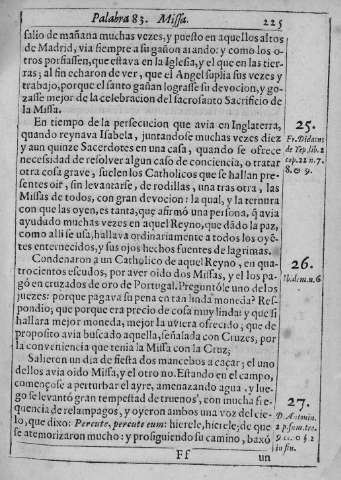 Palabra 83. Missa. 225
salio de mañana muchas vezes, y puesto en aquellos altos
de Madrid, via siempre a su gañon arando: y como los o-
tros porfiassen, que estava en la Iglesia, y el que en las tier-
ras; al fin echaron de ver, que el Angel suplia sus vezes y
trabajo, porque el santo gañan lograsse su devocion, y go-
zasse mejor de la celebracion del sacrosanto Sacrificio de
la Missa.
En tiempo de la persecucion que avia en Inglaterra,
quando reynava Isabela, juntandose muchas vezes diez
y aun quinze Sacerdotes en una casa, quando se ofrece
necessidad de resolver algun caso de conciencia, o tratar
otra cosa grave, suelen los Catholicos que se hallan pre-
sentes oir, sin levantarse, de rodillas, una tras otra, las
Missas de todos, con gran devocion: la qual, y la ternura
con que las oyen, es tanta, que afirmó una persona, q̃ avia
ayudado muchas vezes en aquel Reyno, que dādo la paz,
como alli se usa, hallava ordinariamente a todos los oyē-
tes enternecidos, y sus ojos hechos fuentes de lagrimas.
25.
Fr. Didacus
de Yep. lib. 2
cap. 22 n. 7.
8. & 9.
Condenaron a un Catholico de aquel Reyno, en qua-
trocientos escudos, por aver oido dos Missas, y el los pa-
gó en cruzados de oro de Portugal. Preguntóle uno de los
juezes: porque pagava su pena en tan linda moneda? Res-
pondio; que porque era precio de cosa muy linda: y que si
hallara mejor moneda, mejor la uviera ofrecido; que de
proposito avia buscado aquella, señalada con Cruzes, por
la conveniencia que tenia la Missa con la Cruz.
26.
Ibidem. n. 6
Salieron un dia de fiesta dos mancebos a caçar; el uno
dellos avia oido Missa, y el otro no. Estando en el campo,
començose a perturbar el ayre, amenazando agua. y lue-
go se levantó gran tempestad de truenos, con mucha fre-
quencia de relampagos, y oyeron ambos una voz del cie-
lo, que dixo: Percute, percute eum: hierele, hierele; de que
se atemorizaron mucho: y prosiguiendo su camino, baxó
27.
D. Antonin.
2 p. sum. tra.
9 cc. 0 § 2
in fin.
Ff un